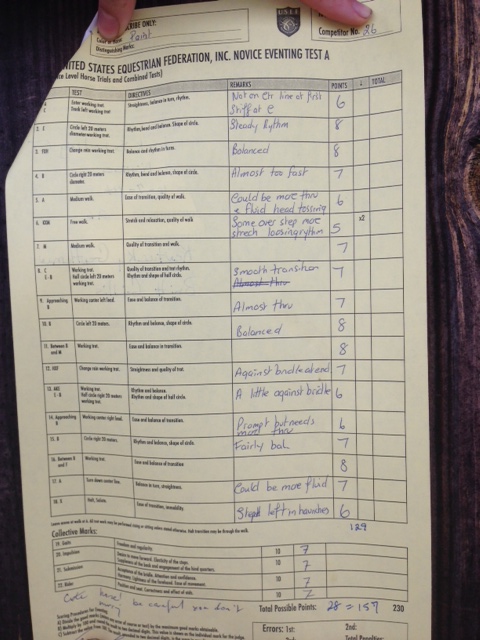 CRIBE ONLY:
Color of Horse Paint
Distinguishing Marks:
USEF
Competitor No. 26
UNITED STATES EQUESTRIAN FEDERATION, INC. NOVICE EVENTING TEST A
Level Horse Trials and Combined Tests)
TEST DIRECTIVES REMARKS POINTS TOTAL
A Enter working trot. Straightness, balance in turn, rhythm. Not on ctr line at first 6
C Track left working trot. Stiff at C
2. E Circle left 20 meters Rhythm, bend and balance. Shape of circle. Steady Rythm 8
diameter working trot.
Change rein working trot. Balance and rhythm in turns. Balanced 8
4. B Circle right 20 meters Rhythm, bend and balance, shape of circle. Almost too fast 7
diameter.
5. A Medium walk. Ease of transition, quality of walk. Could be more thru 6
& fluid head tossing
6. KXM Free walk. Stretch and relaxation, quality of walk Some over step more 5 x2
strech loosing rythm
7. M Medium walk. Quality of transition and walk. 7
8. C Working trot. Quality of transition and trot rhythm. Smooth transition 7
Half circle left 20 meters Rhythm and shape of half circle. Almost thru
working trot.
9. Approaching Working canter left lead. Ease and balance of transition. Almost thru 7
10. Circle left 20 meters. Rhythm and balance, shape of circle. Balanced 8
11. Between B Working trot. Ease and balance in transition. 8
and M
12. Change rein working trot. Straightness and quality of trot. Against bridle at end 7
13. Working trot. Rhythm and balance. A little against bridle 6
Half circle right 20 meters Rhythm and shape of half circle.
working trot.
14. Approaching Working canter right lead. Ease and balance of transition. Prompt but needs 6
more thru
15. B Circle right 20 meters. Rhythm and balance, shape of circle. Fairly bal. 7
16. Between B Working trot. Ease and balance of transition 8
and F
17. A Turn down center line. Balance in turn, straightness. Could be more fluid 7
18. Halt, Salute. left in haunches 6
129
Collective Marks:
19. Gaits Freedom and regularity. 10 7
20. Impulsion Desire to move forward. Elasticity of the steps. 10 7
Suppleness of the back and engagement of the hind quarters.
21. Submission Acceptance of the bridle. Attention and confidence. 10 7
Harmony. Lightness of the forehand. Ease of movement.
22. Rider Position and seat. Correctness and effect of aids. 10 7
be careful you don't
Total Possible Points: 28 = 157 230
Errors: 1st: 2nd:
Total Penalties